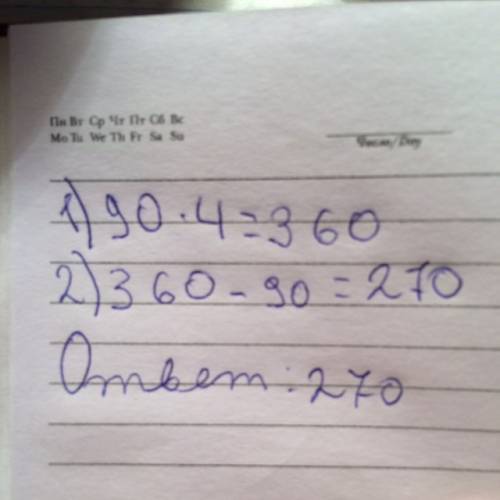 Пн Вт Ср Чт Пт Сб Вс
Mo Tu We Th Fr Sa Su
Число/Day
1) 90 · 4 = 360
2) 360 - 90 = 270
Ответ: 270